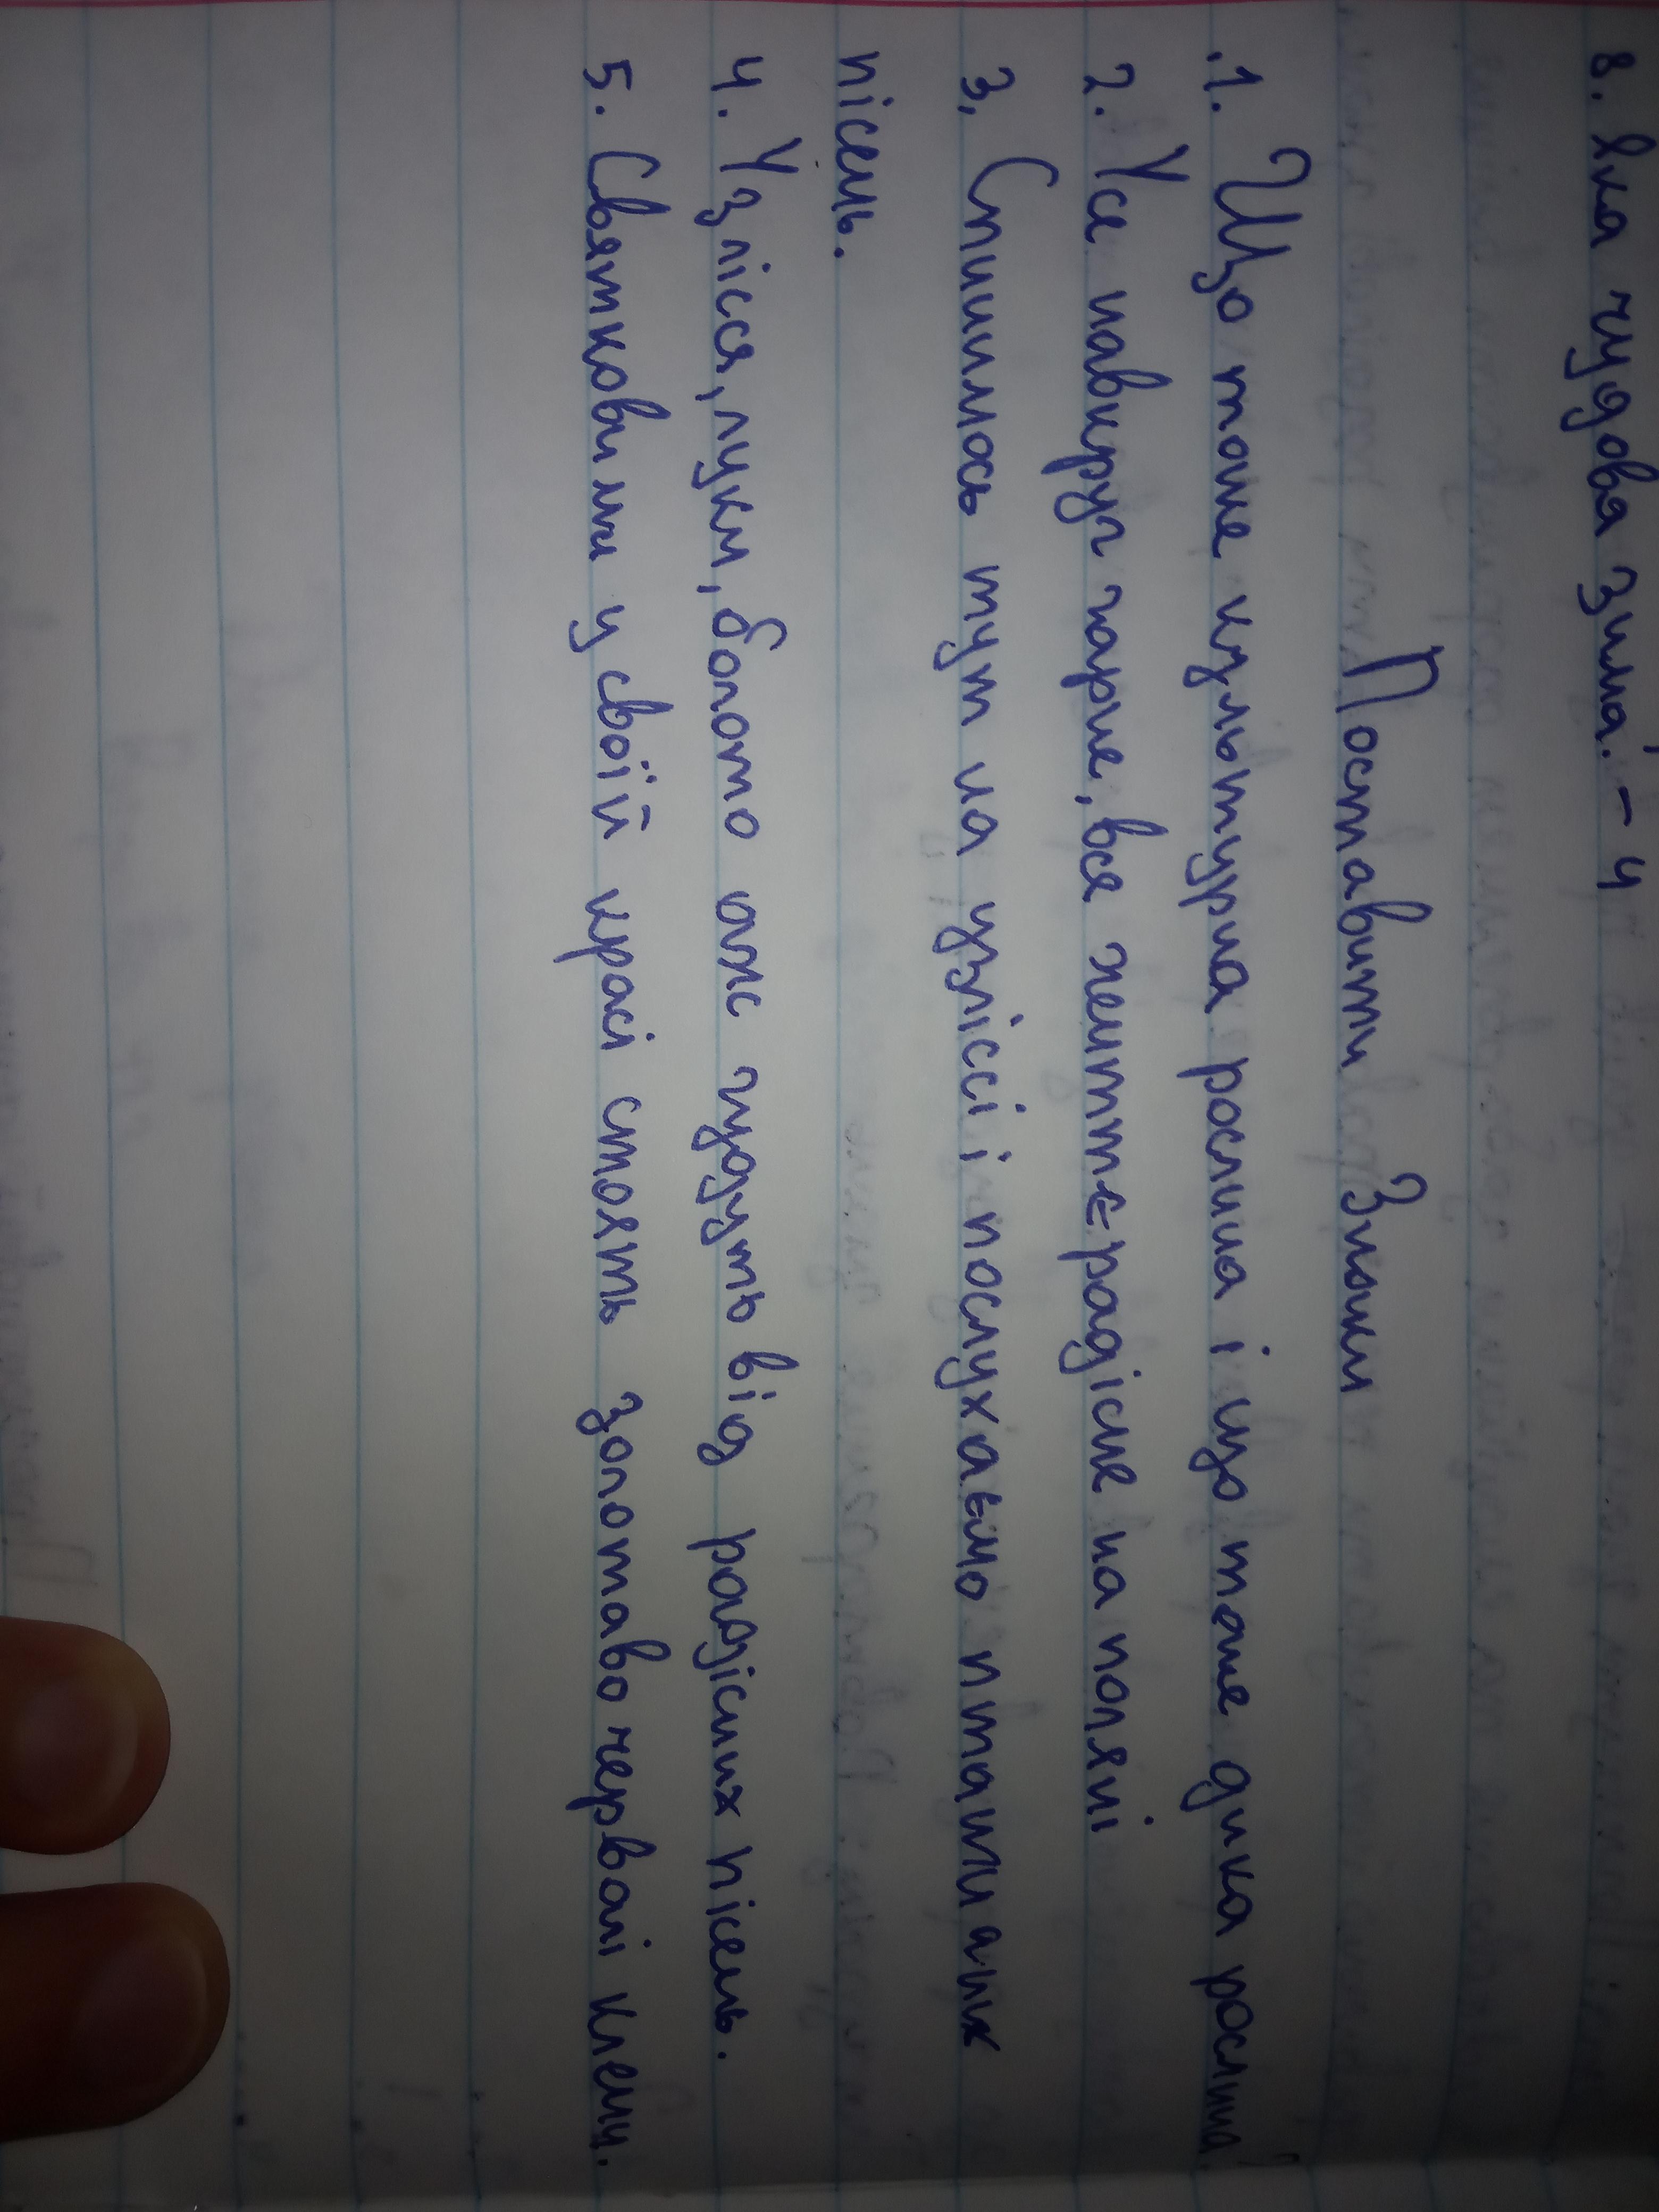 8. Яка чудова зима! - 4
Поставити Знаки
1. Що таке культурна рослина і що таке дика рослина?
2. Усе навкруг гарне, вся життє радісне на поляні
3. Спинилось тут на узліссі і послухаємо пташиних
пісень.
4. Узлісся, луки, болото аж гудуть від радісних пісень.
5. Святковими у своїй красі стоять золотаво червоні клени.